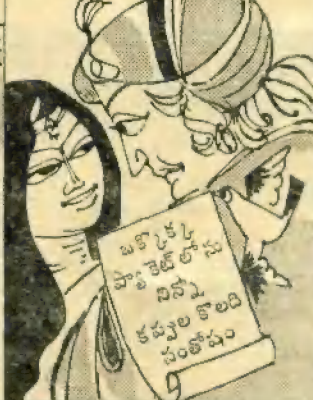 ఒక్కొక్క
ప్యాకెట్ లోను
నిన్నో
కప్పుల కొలది
సంతోషం